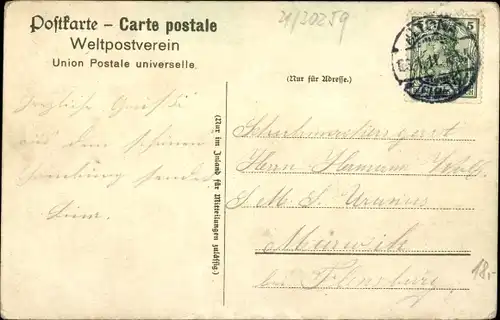 Postkarte – Carte postale
Weltpostverein
Union Postale universelle.
21/30259
5
ALTONA
(Nur für Adresse.)
Herzliche Grüße
aus dem schönen
Hamburg sendet
(Nur im Inland für Mitteilungen zulässig.)
Herrn Hermann Wolf
S. M. S. Uranus
Mürwik
bei Flensburg
18,-